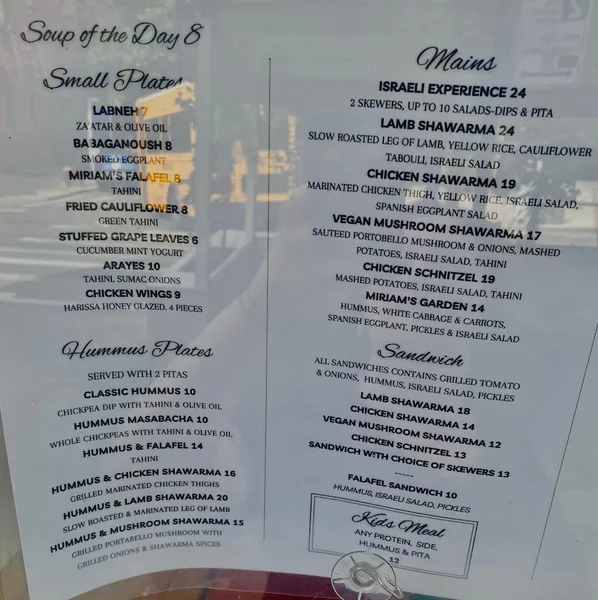 Soup of the Day 8
Small Plates
LABNEH 7
ZA'ATAR & OLIVE OIL
BABAGANOUSH 8
SMOKED EGGPLANT
MIRIAM'S FALAFEL 8
TAHINI
FRIED CAULIFLOWER 8
GREEN TAHINI
STUFFED GRAPE LEAVES 6
CUCUMBER MINT YOGURT
ARAYES 10
TAHINI, SUMAC ONIONS
CHICKEN WINGS 9
HARISSA HONEY GLAZED, 4 PIECES
Hummus Plates
SERVED WITH 2 PITAS
CLASSIC HUMMUS 10
CHICKPEA DIP WITH TAHINI & OLIVE OIL
HUMMUS MASABACHA 10
WHOLE CHICKPEAS WITH TAHINI & OLIVE OIL
HUMMUS & FALAFEL 14
TAHINI
HUMMUS & CHICKEN SHAWARMA 16
GRILLED MARINATED CHICKEN THIGHS
HUMMUS & LAMB SHAWARMA 20
SLOW ROASTED & MARINATED LEG OF LAMB
HUMMUS & MUSHROOM SHAWARMA 15
GRILLED PORTABELLO MUSHROOM WITH
GRILLED ONIONS & SHAWARMA SPICES
Mains
ISRAELI EXPERIENCE 24
2 SKEWERS, UP TO 10 SALADS-DIPS & PITA
LAMB SHAWARMA 24
SLOW ROASTED LEG OF LAMB, YELLOW RICE, CAULIFLOWER
TABOULI, ISRAELI SALAD
CHICKEN SHAWARMA 19
MARINATED CHICKEN THIGH, YELLOW RICE, ISRAELI SALAD,
SPANISH EGGPLANT SALAD
VEGAN MUSHROOM SHAWARMA 17
SAUTEED PORTOBELLO MUSHROOM & ONIONS, MASHED
POTATOES, ISRAELI SALAD, TAHINI
CHICKEN SCHNITZEL 19
MASHED POTATOES, ISRAELI SALAD, TAHINI
MIRIAM'S GARDEN 14
HUMMUS, WHITE CABBAGE & CARROTS,
SPANISH EGGPLANT, PICKLES & ISRAELI SALAD
Sandwich
ALL SANDWICHES CONTAINS GRILLED TOMATO
& ONIONS, HUMMUS, ISRAELI SALAD, PICKLES
LAMB SHAWARMA 18
CHICKEN SHAWARMA 14
VEGAN MUSHROOM SHAWARMA 12
CHICKEN SCHNITZEL 13
SANDWICH WITH CHOICE OF SKEWERS 13
-----
FALAFEL SANDWICH 10
HUMMUS, ISRAELI SALAD, PICKLES
Kids Meal
ANY PROTEIN, SIDE,
HUMMUS & PITA
12